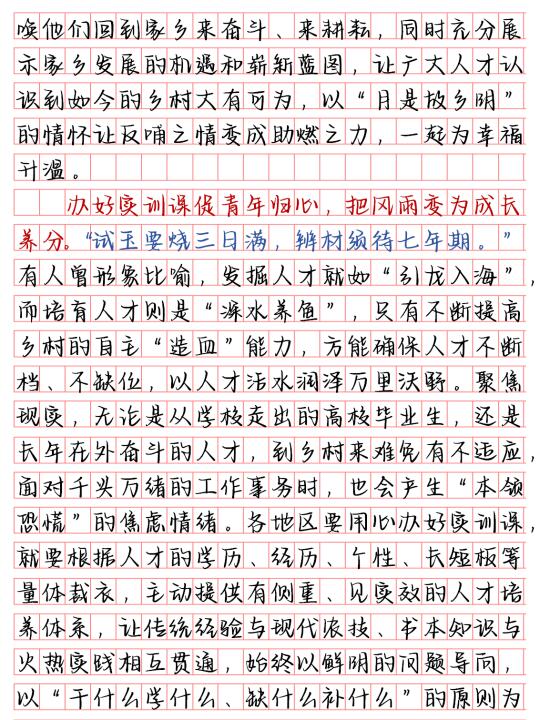 唤他们回到家乡来奋斗、来耕耘，同时充分展
示家乡发展的机遇和崭新蓝图，让广大人才认
识到如今的乡村大有可为，以“月是故乡明”
的情怀让反哺之情变成助燃之力，一起为幸福
升温。
办好实训课促青年归心，把风雨变为成长
养分。“试玉要烧三日满，辨材须待七年期。”
有人曾形象比喻，发掘人才就如“引龙入海”，
而培育人才则是“深水养鱼”，只有不断提高
乡村的自主“造血”能力，方能确保人才不断
档、不缺位，以人才活水润泽万里沃野。聚焦
现实，无论是从学校走出的高校毕业生，还是
长年在外奋斗的人才，到乡村来难免有不适应，
面对千头万绪的工作事务时，也会产生“本领
恐慌”的焦虑情绪。各地区要用心办好实训课，
就要根据人才的学历、经历、个性、长短板等
量体裁衣，主动提供有侧重、见实效的人才培
养体系，让传统经验与现代农技、书本知识与
火热实践相互贯通，始终以鲜明的问题导向，
以“干什么学什么、缺什么补什么”的原则为